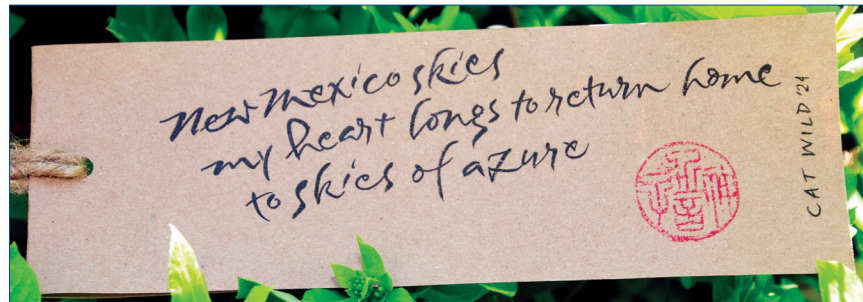 new mexico skies
my heart longs to return home
to skies of azure
CAT WILD '21